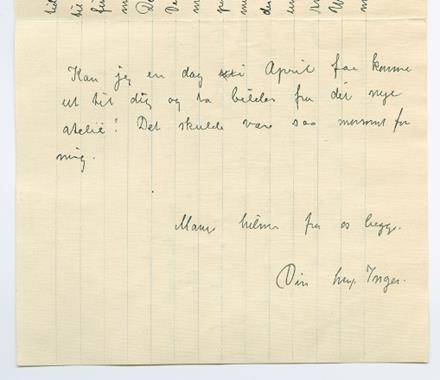 Kan jeg en dag i April faa komme
ut til dig og ta billder fra dit nye
atelié? Det skulde være saa morsomt for
mig.
Mange hilsner fra os begge.
Din heng. Inger.